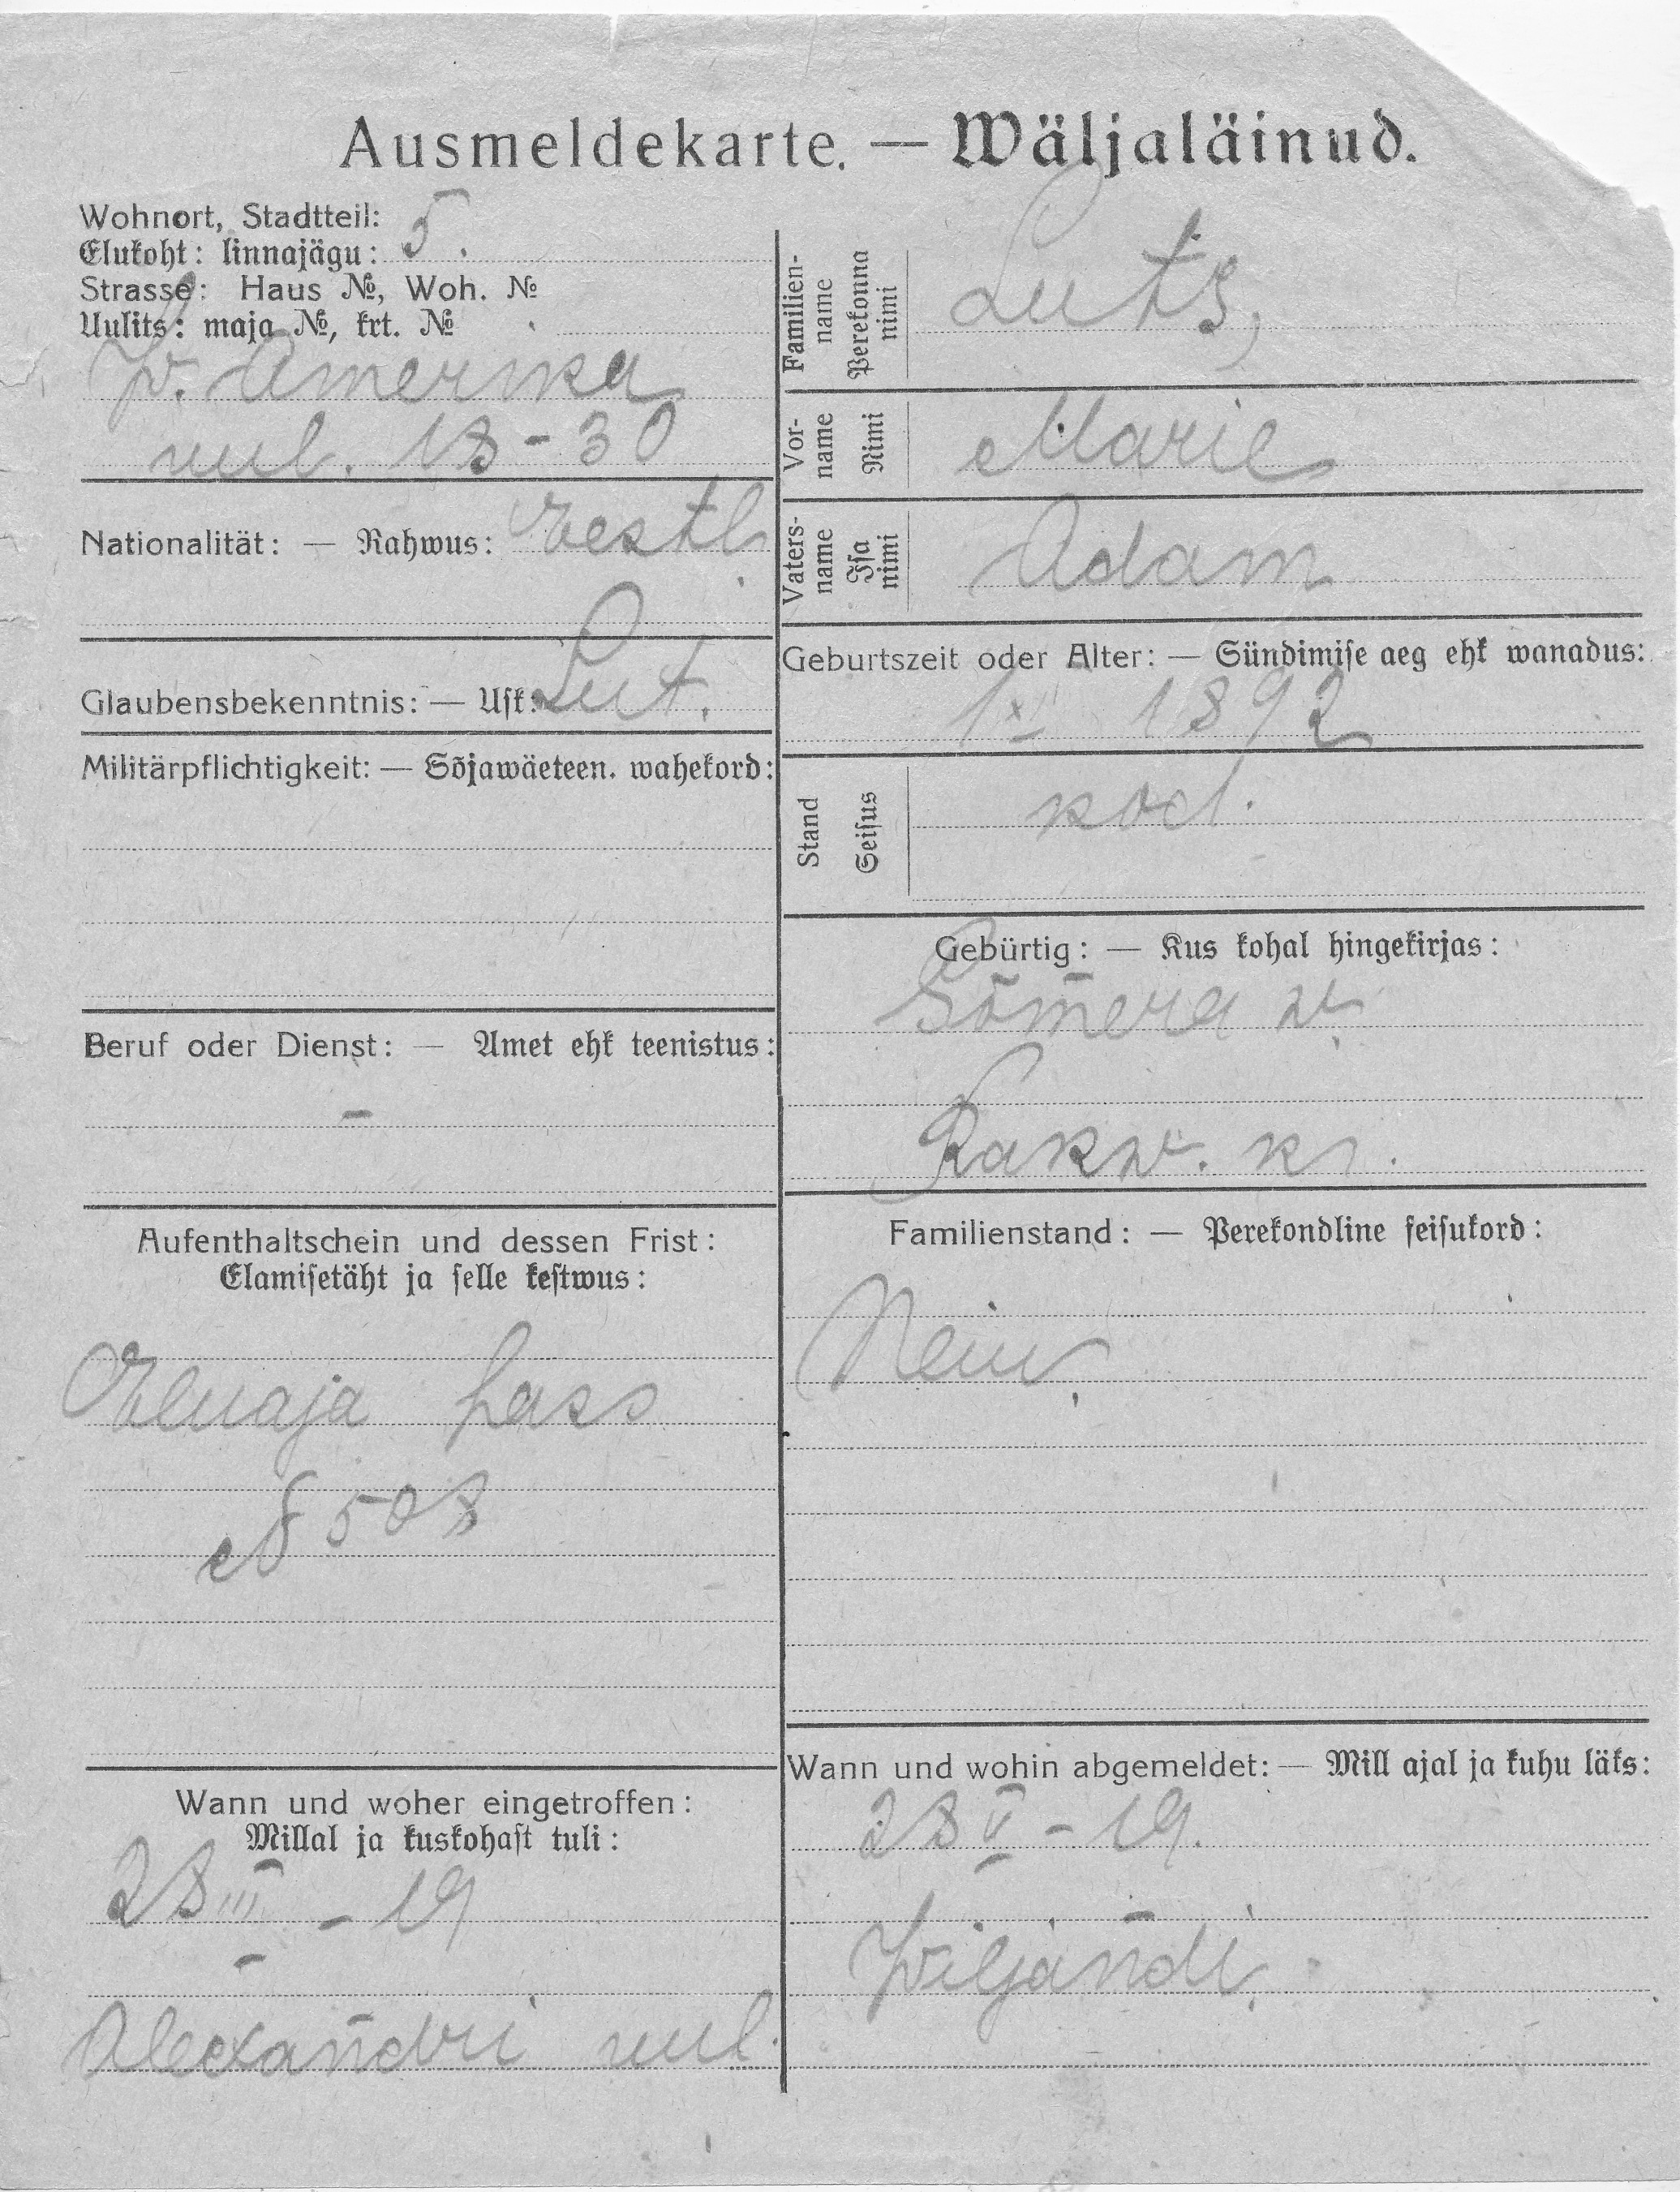 Ausmeldekarte. — Wäljaläinud.
Wohnort, Stadtteil:
Elukoht: linnajägu: 5.
Strasse: Haus №, Woh. №
Uulits: maja №, krt. №
W. Amerika
uul. 18-30
Nationalität: — Rahwus: eestl.
Glaubensbekenntnis: — Usk: Lut.
Militärpflichtigkeit: — Sõjawäeteen. wahekord:
Beruf oder Dienst: — Amet ehk teenistus:
-
Aufenthaltschein und dessen Frist:
Elamisetäht ja selle kestwus:
Eluaja pass
№ 508
Wann und woher eingetroffen:
Millal ja kuskohast tuli:
28 III - 19
Alexandri uul.
Familien-name Perekonna nimi Luts,
Vor-name Nimi Marie
Vaters-name Isa nimi Adam
Geburtszeit oder Alter: — Sündimise aeg ehk wanadus:
1892
Stand Seisus kod.
Gebürtig: — Kus kohal hingekirjas:
Sõmera w.
Rakw. kr.
Familienstand: — Perekondline seisukord:
Neiu,
Wann und wohin abgemeldet: — Mill ajal ja kuhu läks:
28 V - 19.
Wiljandi